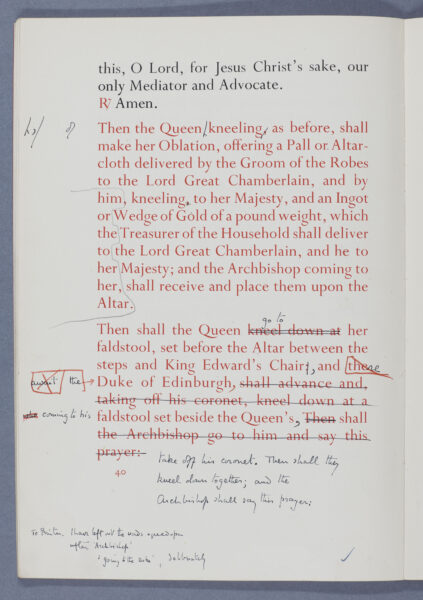 this, O Lord, for Jesus Christ's sake, our
only Mediator and Advocate.
R/ Amen.
Then the Queen kneeling, as before, shall
make her Oblation, offering a Pall or Altar-
cloth delivered by the Groom of the Robes
to the Lord Great Chamberlain, and by
him, kneeling, to her Majesty, and an Ingot
or Wedge of Gold of a pound weight, which
the Treasurer of the Household shall deliver
to the Lord Great Chamberlain, and he to
her Majesty; and the Archbishop coming to
her, shall receive and place them upon the
Altar.
go to
Then shall the Queen kneel down at her
faldstool, set before the Altar between the
steps and King Edward's Chair, and there
the Duke of Edinburgh, shall advance and,
taking off his coronet, kneel down at a
coming to his faldstool set beside the Queen's, Then shall
the Archbishop go to him and say this
prayer:-
take off his coronet. Then shall they
kneel down together; and the
Archbishop shall say this prayer:
40
To Printer. I have left out the words
after 'Archbishop'
'going to the', deliberately